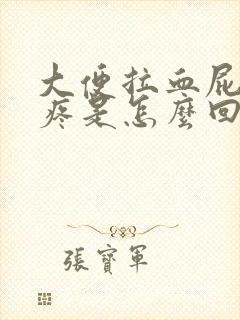 大便拉血屁
疼是怎麼回
張寶軍